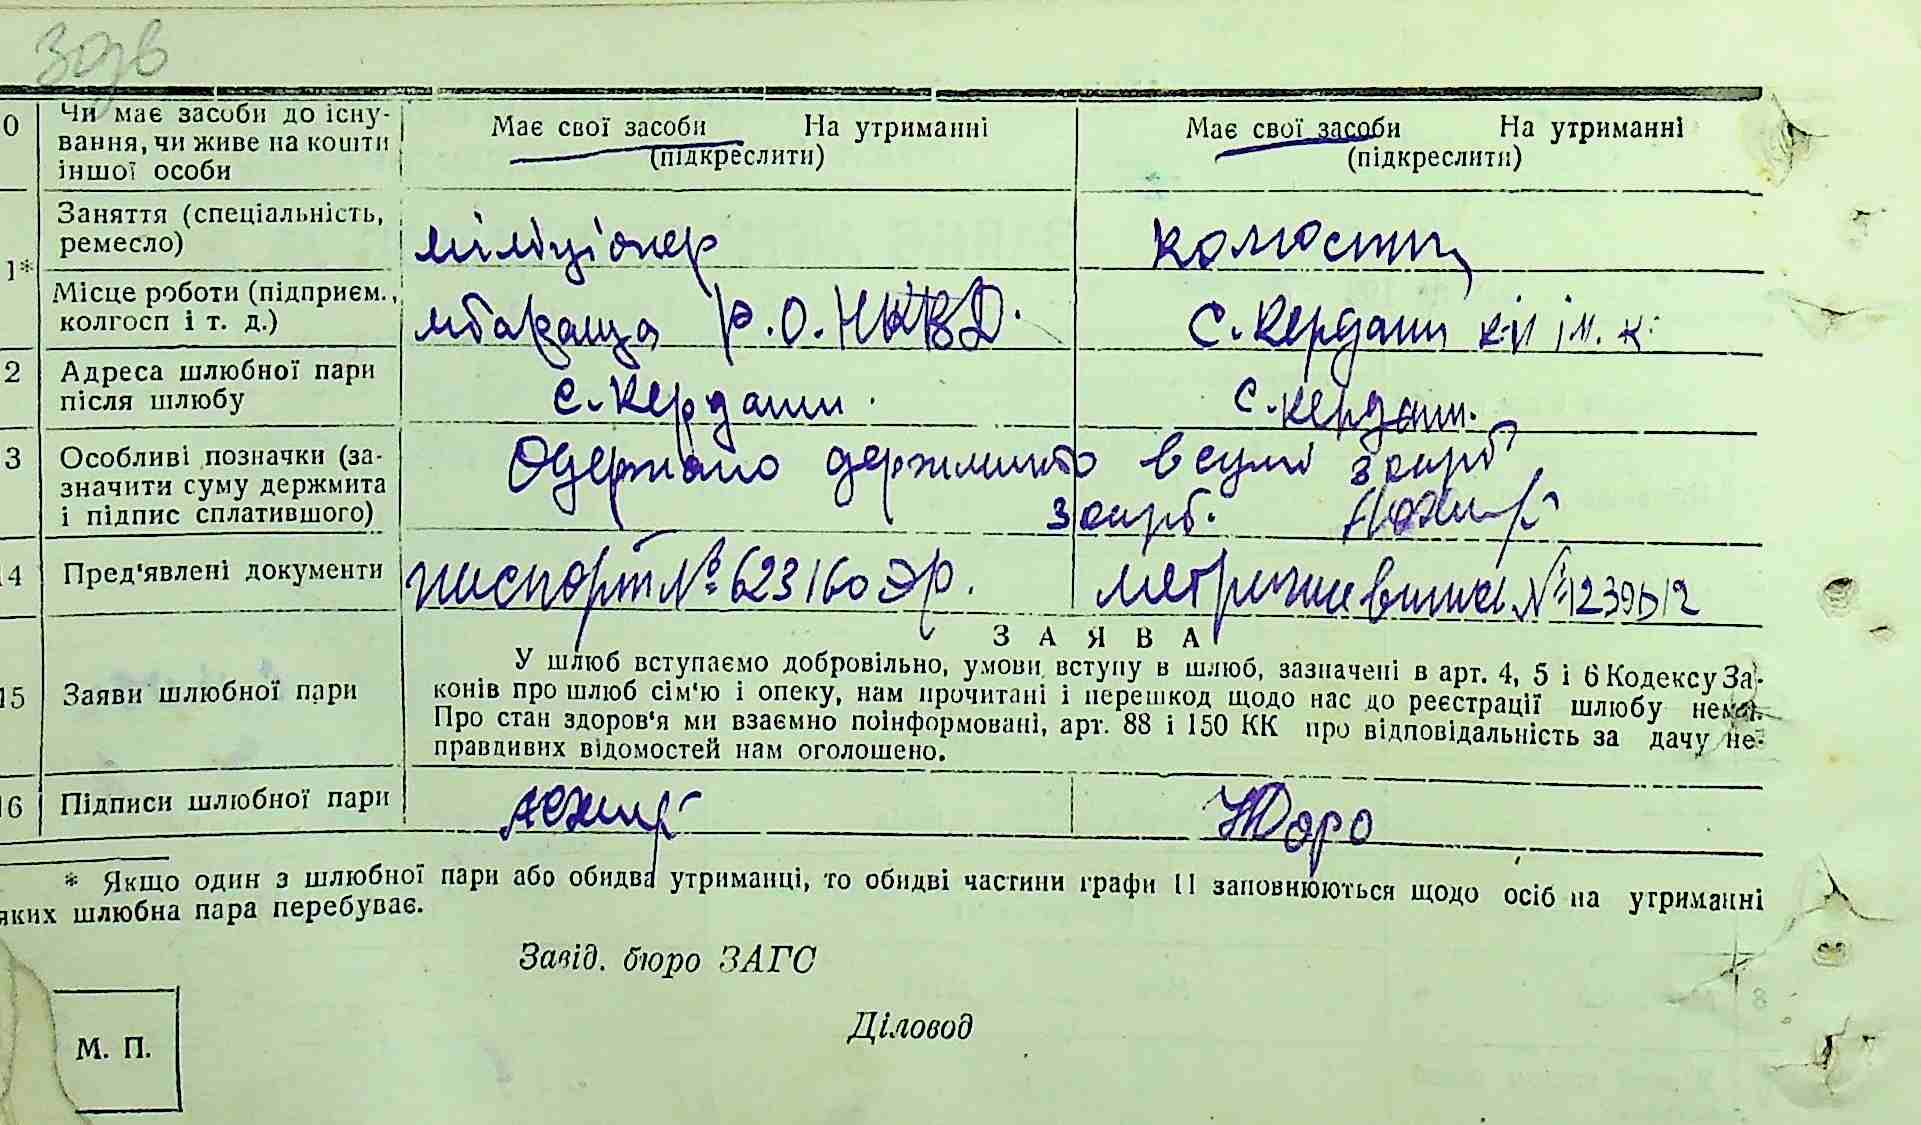 0 Чи має засоби до існу-
вання, чи живе на кошти
іншої особи
Має свої засоби На утриманні
(підкреслити)
Має свої засоби На утриманні
(підкреслити)
1* Заняття (спеціальність,
ремесло)
міліціонер
Місце роботи (підприєм.,
колгосп і т. д.)
Р.О. НКВД.
с. Кердани к-п ім. к.
2 Адреса шлюбної пари
після шлюбу
с. Кердани.
с. Кердани.
3 Особливі позначки (за-
значити суму держмита
і підпис сплатившого)
Одержано держмито в сумі 3 карб
3 карб.
14 Пред'явлені документи
паспорт №623160
15 Заяви шлюбної пари
ЗАЯВА
У шлюб вступаємо добровільно, умови вступу в шлюб, зазначені в арт. 4, 5 і 6 Кодексу За-
конів про шлюб сім'ю і опеку, нам прочитані і перешкод щодо нас до реєстрації шлюбу немає.
Про стан здоров'я ми взаємно поінформовані, арт. 88 і 150 КК про відповідальність за дачу не-
правдивих відомостей нам оголошено.
16 Підписи шлюбної пари
* Якщо один з шлюбної пари або обидва утриманці, то обидві частини графи 11 заповнюються щодо осіб на утриманні
яких шлюбна пара перебуває.
Завід. бюро ЗАГС
Діловод
М. П.